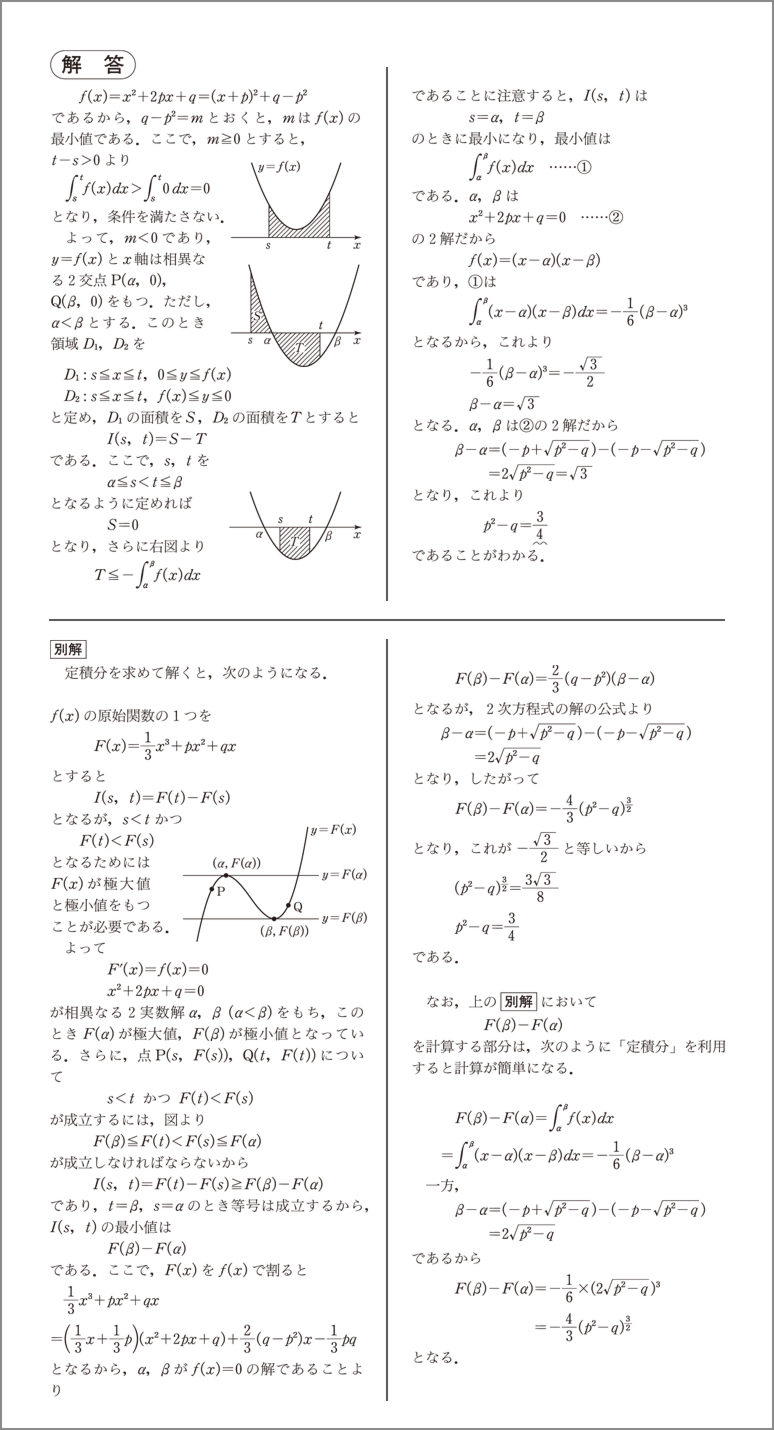 解 答
f(x)=x²+2px+q=(x+p)²+q−p²
であるから，q−p²=m とおくと，m は f(x) の
最小値である．ここで，m≧0 とすると，
t−s>0 より
∫_s^t f(x)dx>∫_s^t 0dx=0
となり，条件を満たさない．
よって，m<0 であり，
y=f(x) と x 軸は相異な
る 2 交点 P(α，0)，
Q(β，0) をもつ．ただし，
α<β とする．このとき
領域 D₁，D₂ を
y=f(x)
s t x
S T
s α t β x
D₁ : s≦x≦t，0≦y≦f(x)
D₂ : s≦x≦t，f(x)≦y≦0
と定め，D₁ の面積を S，D₂ の面積を T とすると
I(s，t)=S−T
である．ここで，s，t を
α≦s<t≦β
となるように定めれば
S=0
となり，さらに右図より
T≦−∫_α^β f(x)dx
α s t β x
T
であることに注意すると，I(s，t) は
s=α，t=β
のときに最小になり，最小値は
∫_α^β f(x)dx ……①
である．α，β は
x²+2px+q=0 ……②
の 2 解だから
f(x)=(x−α)(x−β)
であり，①は
∫_α^β (x−α)(x−β)dx=−1/6(β−α)³
となるから，これより
−1/6(β−α)³=−√3/2
β−α=√3
となる．α，β は②の 2 解だから
β−α=(−p+√(p²−q))−(−p−√(p²−q))
=2√(p²−q)=√3
となり，これより
p²−q=3/4
であることがわかる．
別解
定積分を求めて解くと，次のようになる．
f(x) の原始関数の 1 つを
F(x)=1/3x³+px²+qx
とすると
I(s，t)=F(t)−F(s)
となるが，s<t かつ
F(t)<F(s)
となるためには
F(x) が極大値
と極小値をもつ
ことが必要である．
よって
y=F(x)
(α, F(α))
y=F(α)
P
Q
y=F(β)
(β, F(β))
F′(x)=f(x)=0
x²+2px+q=0
が相異なる 2 実数解 α，β (α<β) をもち，この
とき F(α) が極大値，F(β) が極小値となってい
る．さらに，点 P(s，F(s))，Q(t，F(t)) につい
て
s<t かつ F(t)<F(s)
が成立するには，図より
F(β)≦F(t)<F(s)≦F(α)
が成立しなければならないから
I(s，t)=F(t)−F(s)≧F(β)−F(α)
であり，t=β，s=α のとき等号は成立するから，
I(s，t) の最小値は
F(β)−F(α)
である．ここで，F(x) を f(x) で割ると
1/3x³+px²+qx
=(1/3x+1/3p)(x²+2px+q)+2/3(q−p²)x−1/3pq
となるから，α，β が f(x)=0 の解であることよ
り
F(β)−F(α)=2/3(q−p²)(β−α)
となるが，2 次方程式の解の公式より
β−α=(−p+√(p²−q))−(−p−√(p²−q))
=2√(p²−q)
となり，したがって
F(β)−F(α)=−4/3(p²−q)^(3/2)
となり，これが −√3/2 と等しいから
(p²−q)^(3/2)=3√3/8
p²−q=3/4
である．
なお，上の 別解 において
F(β)−F(α)
を計算する部分は，次のように「定積分」を利用
すると計算が簡単になる．
F(β)−F(α)=∫_α^β f(x)dx
=∫_α^β (x−α)(x−β)dx=−1/6(β−α)³
一方，
β−α=(−p+√(p²−q))−(−p−√(p²−q))
=2√(p²−q)
であるから
F(β)−F(α)=−1/6×(2√(p²−q))³
=−4/3(p²−q)^(3/2)
となる．